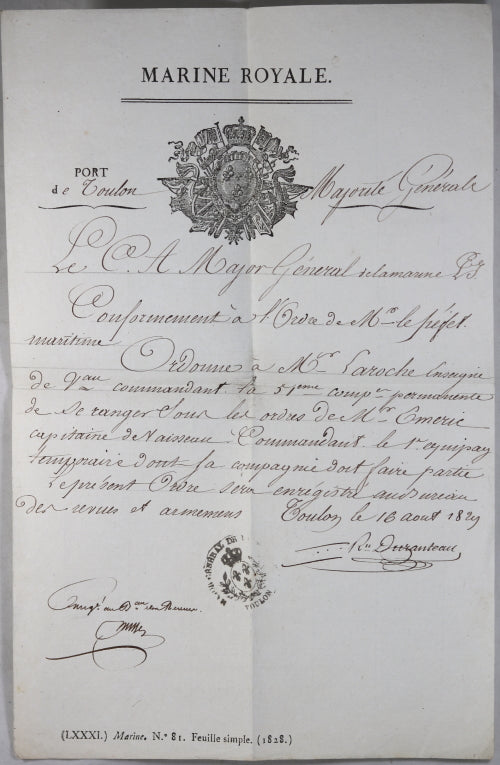 MARINE ROYALE.
PORT
de Toulon
Majorité Générale
Le C. A Major Général de la marine
Conformement à l'Ordre de Mr le préfet
maritime
Ordonne à Mr Laroche Enseigne
de Vau commandant la 51eme compie permanente
de se ranger sous les ordres de Mr Emeric
capitaine de Vaisseau Commandant le 1er equipage
temporaire dont sa compagnie doit faire partie
Le présent Ordre sera enregistré au bureau
des revues et armemens Toulon le 16 aout 1829
TOULON.
(LXXXI.) Marine. N.º 81. Feuille simple. (1828.)